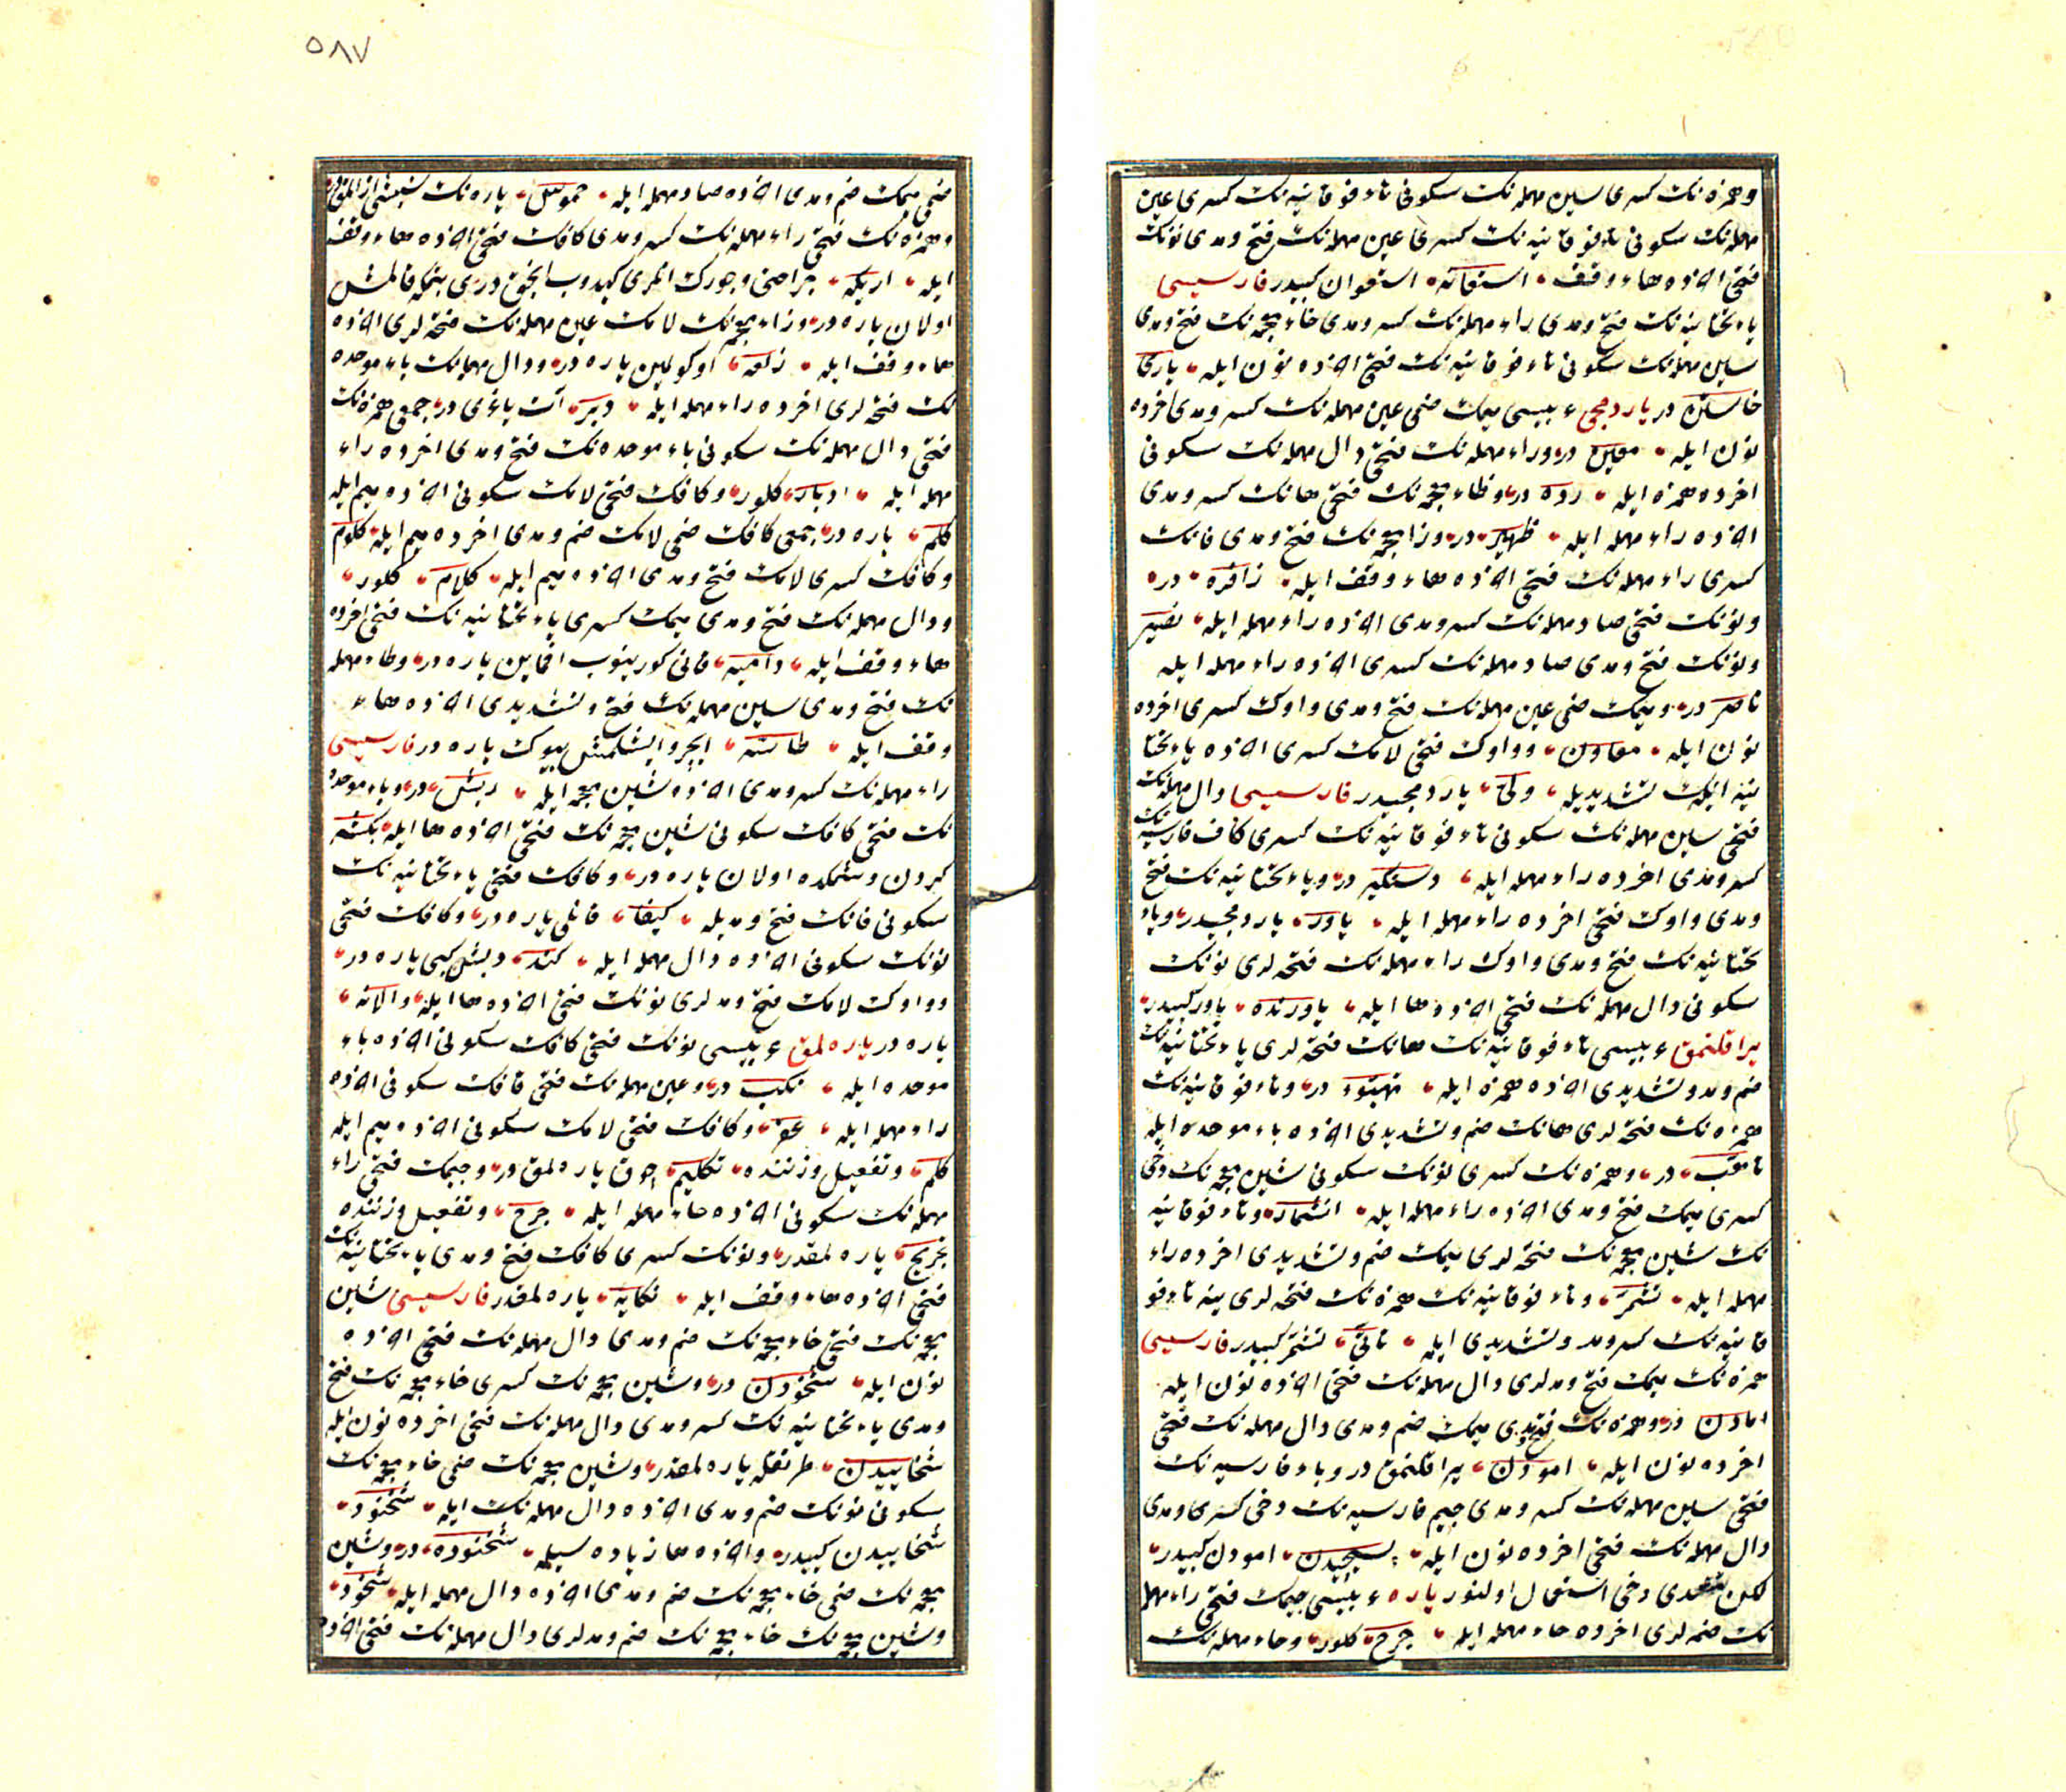 وهمزه‌نك كسرى سين مهمله‌نك سكونى تاء فوقانيه‌نك كسرى عين
مهمله‌نك سكونى تاء فوقانيه‌نك كسرى عين مهمله‌نك فتح ومدى نونك
فتحى اخرده هاء وقف ايله استعانه استعوان كبيدر فارسيسى
ياء تحتانيه‌نك فتح ومدى راء مهمله‌نك كسر ومدى خاء معجمه‌نك فتح ومدى
سين مهمله‌نك سكونى تاء فوقانيه‌نك فتحى اخرده نون ايله يارى
خاستن در ياردمجى عربيسى ميمك ضمى عين مهمله‌نك كسر ومدى اخرده
نون ايله معين در وراء مهمله‌نك فتحى دال مهمله‌نك سكونى
اخرده همزه ايله ردء در وظاء معجمه‌نك فتحى هانك كسر ومدى
اخرده راء مهمله ايله ظهير در وزا معجمه‌نك فتح ومدى فانك
كسرى راء مهمله‌نك فتحى اخرده هاء وقف ايله زافره در
ونونك فتحى صاد مهمله‌نك كسر ومدى اخرده راء مهمله ايله نصير
ونونك فتح ومدى صاد مهمله‌نك كسرى اخرده راء مهمله ايله
ناصر در وميمك ضمى عين مهمله‌نك فتح ومدى واوك كسرى اخرده
نون ايله معاون وواوك فتحى لامك كسرى اخرده ياء تحتا
نيه‌نك تشديديله ولى ياردمجيدر فارسيسى دال مهمله‌نك
فتحى سين مهمله‌نك سكونى تاء فوقانيه‌نك كسرى كاف فارسيه‌نك
كسر ومدى اخرده راء مهمله ايله دستكير در وياء تحتانيه‌نك فتح
ومدى واوك فتحى اخرده راء مهمله ايله ياور ياردمجيدر وياء
تحتانيه‌نك فتح ومدى واوك راء مهمله‌نك فتحه‌لرى نونك
سكونى دال مهمله‌نك فتحى اخرده ها ايله ياورنده ياور كبيدر
يراقلنمق عربيسى تاء فوقانيه‌نك هانك فتحه‌لرى ياء تحتانيه‌نك
ضم ومد وتشديدى اخرده همزه ايله تهيؤ در وتاء فوقانيه‌نك
همزه‌نك فتحه‌لرى هانك ضم وتشديدى اخرده باء موحده ايله
تأهب در وهمزه‌نك كسرى نونك سكونى شين معجمه‌نك دخى
كسرى ميمك فتح ومدى اخرده راء مهمله ايله انشمار وتاء فوقانيه
نك شين معجمه‌نك فتحه‌لرى ميمك ضم وتشديدى اخرده راء
مهمله ايله تشمر وتاء فوقانيه‌نك همزه‌نك فتحه‌لرى ينه تاء فو
قانيه‌نك كسر ومد وتشديدى ايله تأتى تشمر كبيدر فارسيسى
همزه‌نك ميمك فتح ومدلرى دال مهمله‌نك فتحى اخرده نون ايله
امادن در وهمزه‌نك فتح ومدى ميمك ضم ومدى دال مهمله‌نك فتحى
اخرده نون ايله امودن يراقلنمق در وباء فارسيه‌نك
فتحى سين مهمله‌نك كسر ومدى جيم فارسيه‌نك دخى كسرى ومدى
دال مهمله‌نك فتحى اخرده نون ايله پسيچيدن امودن كبيدر
لكن متعدى دخى استعمال اولنور ياره عربيسى جيمك فتحى راء مهمله
نك ضمه‌لرى اخرده حاء مهمله ايله جرح كلور وحاء مهمله‌نك
٥٨٧
ضمى ميمك ضم ومدى اخرده صاد مهمله ايله حموص ياره‌نك
وهمزه‌نك فتحى راء مهمله‌نك كسر ومدى كافك فتحى اخرده هاء وقف
ايله اريكه
اولان ياره در وزاء معجمه‌نك لامك عين مهمله‌نك فتحه‌لرى اخرده
هاء وقف ايله زلعه اوكولمين ياره در ودال مهمله‌نك باء موحده
نك فتحه‌لرى اخرده راء مهمله ايله دبر ات ياغرى در جمعى همزه‌نك
فتحى دال مهمله‌نك سكونى باء موحده‌نك فتح ومدى اخرده راء
مهمله ايله ادبار كلور وكافك فتحى لامك سكونى اخرده ميم ايله
كلم ياره در جمعى كافك ضمى لامك ضم ومدى اخرده ميم ايله كلوم
وكافك كسرى لامك فتح ومدى اخرده ميم ايله كلام كلور
ودال مهمله‌نك فتح ومدى ميمك كسرى ياء تحتانيه‌نك فتحى اخرده
هاء وقف ايله داميه قانى كورينوب اقماين ياره در وطاء مهمله
نك فتح ومدى سين مهمله‌نك فتح وتشديدى اخرده هاء
وقف ايله طاسه ايچرو ايشلمش بيوك ياره در فارسيسى
راء مهمله‌نك كسر ومدى اخرده شين معجمه ايله ريش در وباء موحده
نك فتحى كافك سكونى شين معجمه‌نك فتحى اخرده ها ايله بكشه
كردن وشكمده اولان ياره در وكافك فتحى ياء تحتانيه‌نك
سكونى فانك فتح ومديله كيفا قانلى ياره در وكافك فتحى
نونك سكونى اخرده دال مهمله ايله كند ديشلى كبى ياره در
وواوك لامك فتح ومدلرى نونك فتحى اخرده ها ايله والانه
ياره در ياره‌لمق عربيسى نونك فتحى كافك سكونى اخرده باء
موحده ايله نكب در وعين مهمله‌نك فتحى قافك سكونى اخرده
راء مهمله ايله عقر وكافك فتحى لامك سكونى اخرده ميم ايله
كلم وتفعيل وزننده تكليم چوق ياره‌لمق در وجيمك فتحى راء
مهمله‌نك سكونى اخرده حاء مهمله ايله جرح وتفعيل وزننده
تجريح ياره‌لمقدر ونونك كسرى كافك فتح ومدى ياء تحتانيه‌نك
فتحى اخرده هاء وقف ايله نكايه ياره‌لمقدر فارسيسى شين
معجمه‌نك فتحى خاء معجمه‌نك ضم ومدى دال مهمله‌نك فتحى اخرده
نون ايله شخودن در وشين معجمه‌نك كسرى خاء معجمه‌نك فتح
ومدى ياء تحتانيه‌نك كسر ومدى دال مهمله‌نك فتحى اخرده نون ايله
شخاييدن طرنقله ياره‌لمقدر وشين معجمه‌نك ضمى خاء معجمه‌نك
سكونى نونك ضم ومدى اخرده دال مهمله‌نك ايله شخنود
شخاييدن كبيدر واخرده ها زياده سيله شخنوده در وشين
معجمه‌نك ضمى خاء معجمه‌نك ضم ومدى اخرده دال مهمله ايله شخود
وشين معجمه‌نك خاء معجمه‌نك ضم ومدلرى دال مهمله‌نك فتحى اخرده